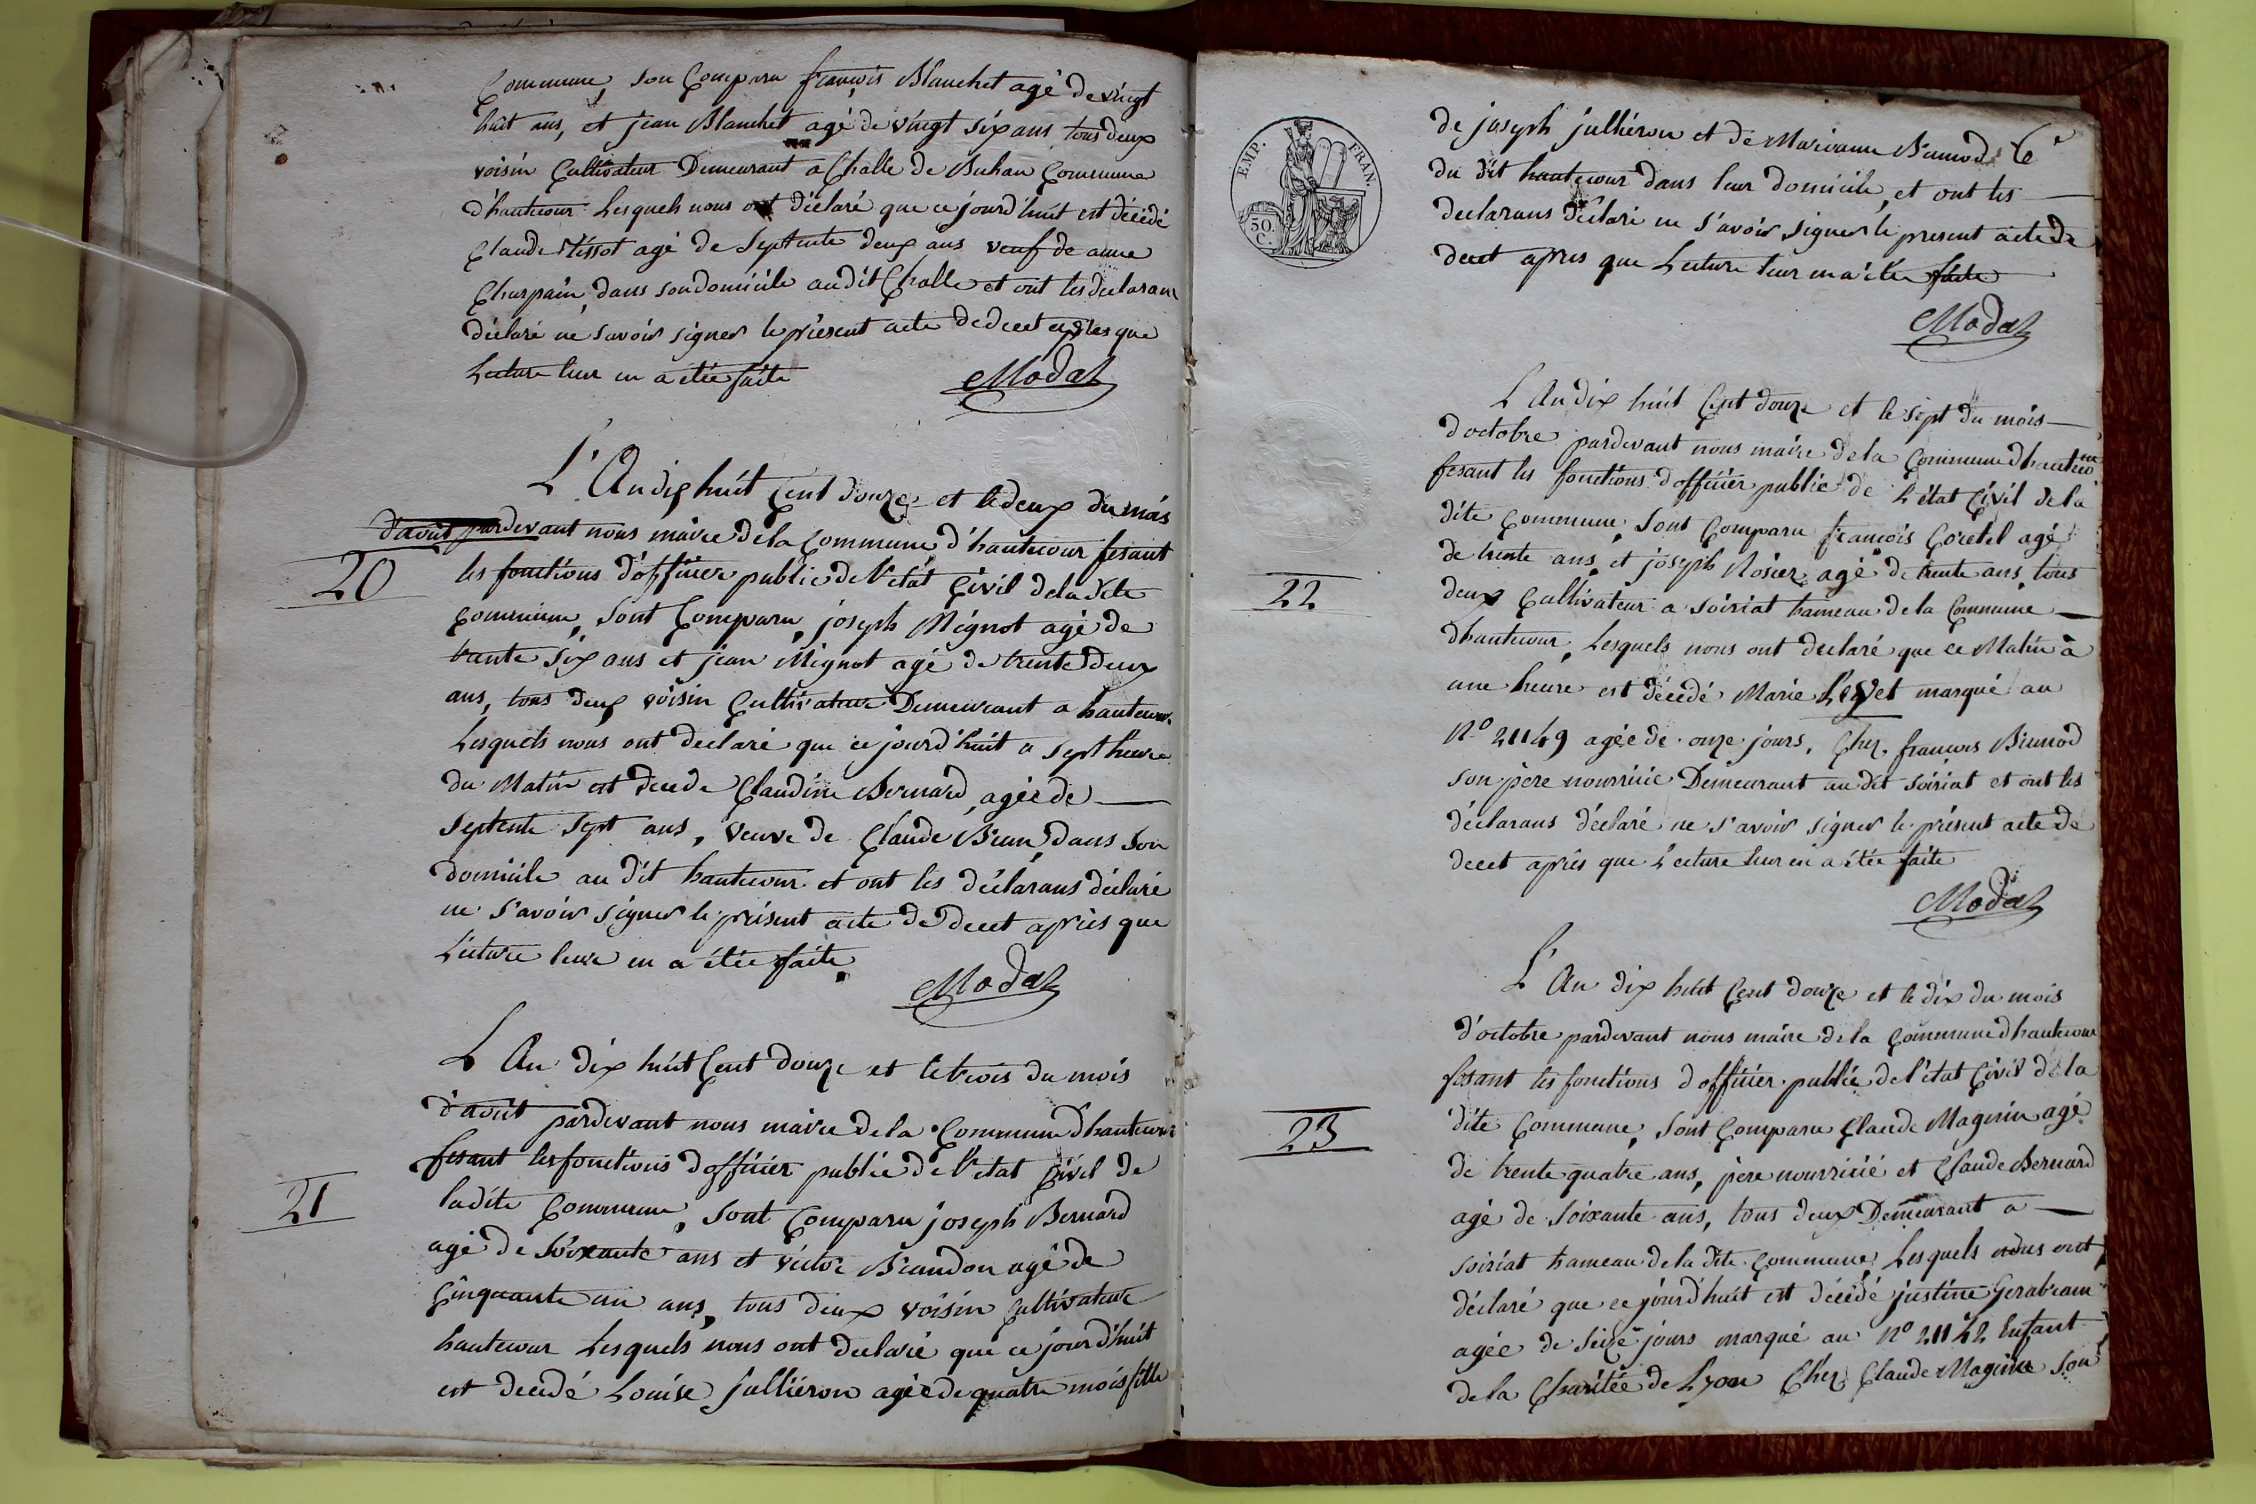 Commune, son Comparu françois Blanchet agé de vingt
huit ans, et jean Blanchet agé de vingt six ans tous deux
voisin Cultivateur Demeurant a Challe de Buhan Commune
d'hautecour Lesquels nous ont déclaré que ce jourd'huit est décédé
Claude Tissot agé de Septente deux ans veuf de anne
Churpain, dans son domicile au dit Challe et ont les declarans
déclaré ne savoir signer le présent acte de decet après que
Lecture leur en a étée faite
Modas
L'An dix huit Cent douze et le deux du mois
d'avout pardevant nous maire de la Commune d'hautecour fesant
20
les fonctions d'officier public de l'etat Civil de la dite
Commune, sont Comparu, joseph Mignot agé de
trante six ans et jean Mignot agé de trente deux
ans, tous deux voisin Cultivateur Demeurant a hautecour
Lesquels nous ont declaré que ce jourd'huit a sept heure
du Matin est decede Claudine Bernard, agée de
septente sept ans, veuve de Claude Brun, dans son
domicile au dit hautecour et ont les déclarans déclaré
ne s'avoir signer le présent acte de decet après que
Lecture leur en a étée faite
Modas
L An dix huit Cent douze et le trois du mois
d'avout pardevant nous maire de la Commune d'hautecour
fesant les fonctions d'officier public de l'etat Civil de
21
ladite Commune, sont Comparu joseph Bernard
agé de soixante ans et victor Brundon agé de
Cinquante un ans, tous deux voisin Cultivateur
hautecour Lesquels nous ont declaré que ce jour d'huit
est decedé Louise julliéron agée de quatre mois fille
EMP. FRAN.
50 C.
de joseph julliéron et de Marianne Brunod 6e
du dit hautecour dans leur domicile, et ont les
declarans déclaré ne s'avoir signer le present acte de
decet apres que Lecture leur en a étée faite
Modas
L An dix huit Cent douze et le sept du mois
d'octobre pardevant nous maire de la Commune d'hautecour
fesant les fonctions d'officier public de L'état Civil de la
dite Commune, sont Comparu françois Goretel agé
de trente ans, et joseph Rosier agé de trente ans, tous
22
deux Cultivateur a soiriat hameau de la Commune
d'hautecour, Lesquels nous ont declaré que ce Matin a
une heure est décedé Marie Levet marqué au
No 21149 agée de onze jours, Chez françois Brunod
son père nourricié Demeurant au dit soiriat et ont les
déclarans déclaré ne s'avoir signer le présent acte de
decet après que Lecture leur en a étée faite
Modas
L' An dix huit Cent douze et le dix du mois
d'octobre pardevant nous maire de la Commune d'hautecour
fesant les fonctions d'officier public de l'état Civil de la
23
dite Commune, sont Comparu Claude Maginin agé
de trente quatre ans, père nourricié et Claude Bernard
agé de soixante ans, tous deux Demeurant a
soiriat hameau de la dite Commune, Lesquels nous ont
déclaré que ce jourd'huit est décédé justine
agée de Seize jours marqué au No 21142 Enfant
de la Charitée de Lyon Chez Claude Maginin son